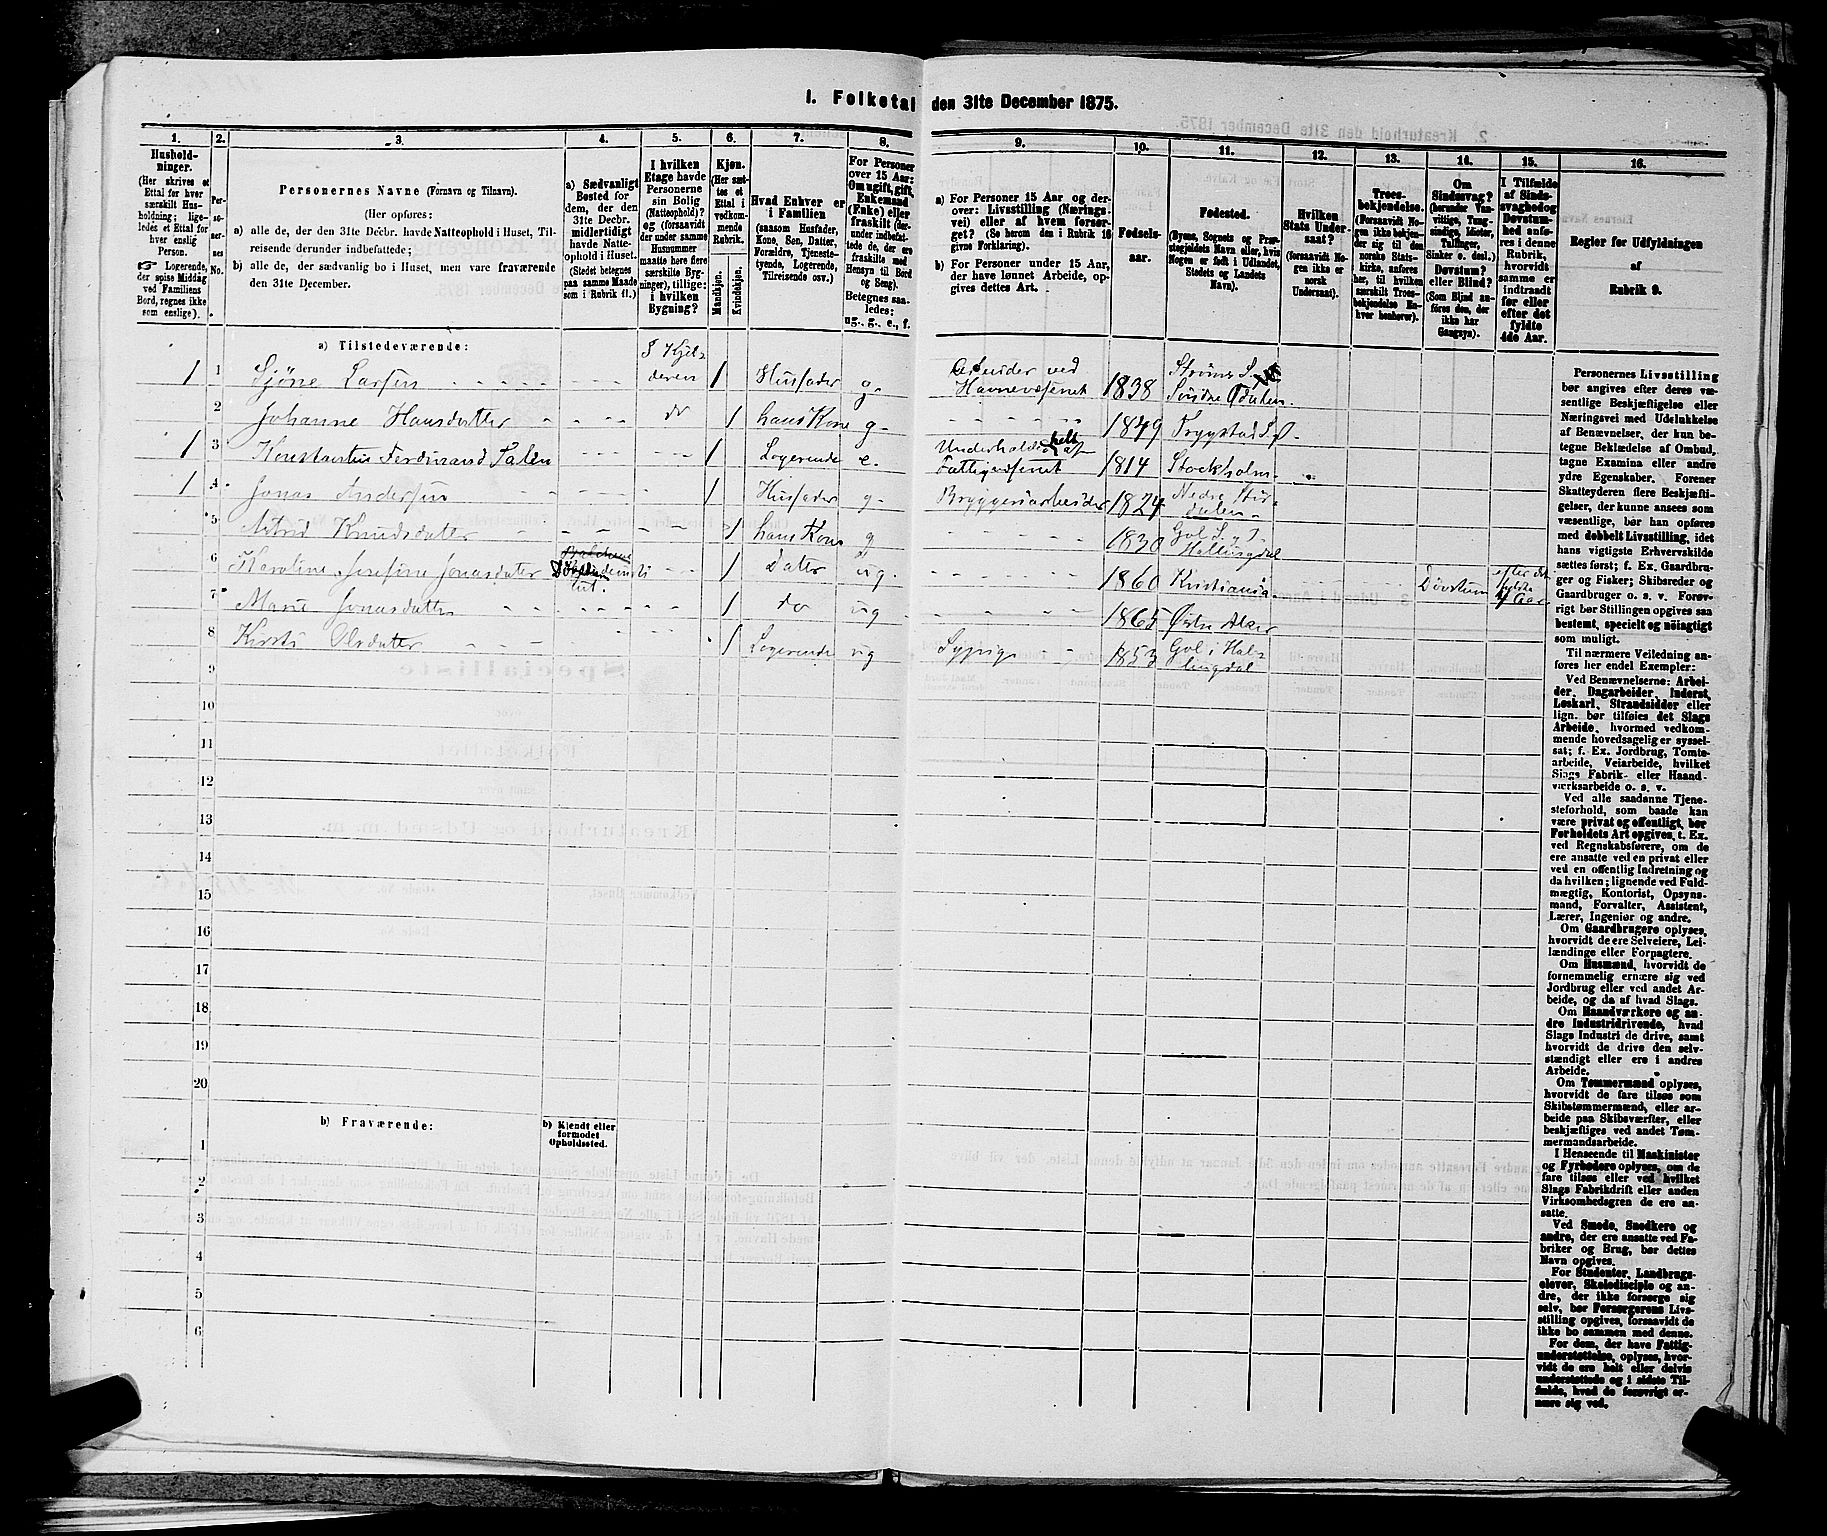 I. Folketal den 31te December 1875.
1. 2. 3. 4. 5. 6. 7. 8. 9. 10. 11. 12. 13. 14. 15. 16.
Husholdninger.
(Her skrives et Ettal for hver særskilt Husholdning; ligeledes et Ettal for hver enslig Person.
Logerende, der spise Middag ved Familiens Bord, regnes ikke som enslige).
Personernes No.
Personernes Navne (Fornavn og Tilnavn).
(Her opføres:
a) alle de, der den 31te Decbr. havde Natteophold i Huset, Tilreisende derunder indbefattede;
b) alle de, der sædvanlig bo i Huset, men vare fraværende den 31te December.
a) Sædvanligt Bosted for dem, der den 31te Decbr. midlertidigt havde Natteophold i Huset.
(Stedet betegnes paa samme Maade som i Rubrik 11.)
I hvilken Etage havde Personerne sin Bolig (Natteophold)?
og (forsaavidt der under samme Husnummer maatte høre flere særskilte Bygninger), tillige: i hvilken Bygning?
Kjøn.
(Her sættes et Ettal i vedkommende Rubrik.
Mandkjøn.
Kvindekjøn.
Hvad Enhver er i Familien
(saasom Husfader, Kone, Søn, Datter, Forældre, Tjenestetyende, Logerende, Tilreisende osv.)
For Personer over 15 Aar: Om ugift, gift, Enkemand (Enke) eller fraskilt (herunder indbefattede de, der ere fraskilte med Hensyn til Bord og Seng).
Betegnes saaledes: ug., g., e., f.
a) For Personer 15 Aar og derover: Livsstilling (Næringsvei) eller af hvem forsørget? (Se herom den i Rubrik 16 givne Forklaring).
b) For Personer under 15 Aar, der have lønnet Arbeide, opgives dettes Art.
Fødselsaar.
Fødested.
(Byens, Sognets og Præstegjeldets Navn eller, hvis Nogen er født i Udlandet, Stedets og Landets Navn).
Hvilken Stats Undersaat?
(forsaavidt Nogen ikke er norsk Undersaat).
Troesbekjendelse.
(Forsaavidt Nogen ikke bekjender sig til den norske Statskirke, anføres her, til hvilken særskilt Troesbekjendelse Enhver henhører).
Om Sindssvag? (herunder Vanvittige, Tungsindige, Idioter, Tullinger, Sinker o. desl.)
Døvstum? eller Blind?
(Som Blind anføres den, der ikke har Gangsyn).
I Tilfælde af Sindssvaghed og Døvstumhed anføres i denne Rubrik, hvorvidt samme er indtraadt før eller efter det fyldte 4de Aar.
Regler for Udfyldningen af Rubrik 9.
a) Tilstedeværende:
1 1 Sjöne Larsen I Kjelderen 1 Husfader g. Arbeider ved Havnevæsenet 1838
2 Johanne Hansdatter do 1 hans Kone g. 1849 Trygstad S. Ø.
1 3 Konstantin Ferdinand Salen 1 Logerende e. Underholdes helt af Fattigvæsenet 1814 Stockholm
1 4 Jonas Andersen 1 Husfader g. Bryggeriarbeider 1824
5 Astrid Knudsdatter 1 hans Kone g 1830 Gol S. i Hallingdal
6 Karoline Josefine Jonasdatter 1 Dater ug. 1860 Kristiania Døvstum efter det fyldte 4 Aar
7 Marie Jonasdatter 1 do ug 1865 Østre Aker
8 Kirsti Olsdatter 1 Logerende ug Sypige 1853 Gol i Hallingdal
9
10
11
12
13
14
15
16
17
18
19
20
b) Fraværende:
b) Kjendt eller formodet Opholdssted.
1
2
3
4
5
6
Personernes Livsstilling bør angives efter deres væsentlige Beskjæftigelse eller Næringsvei med Udelukkelse af Benævnelser, der kun betegne Bekladelse af Ombud, tagne Examina eller andre ydre Egenskaber. Forener Skatteyderen flere Beskjæftigelser, der kunne ansees som væsentlige, bør han opføres med dobbelt Livsstilling, idet hans vigtigste Erhvervskilde sættes først; f. Ex. Gaardbruger og Fisker; Skibsreder og Gaardbruger o. s. v. Forøvrigt bør Stillingen opgives saa bestemt, specielt og nøiagtigt som muligt.
Til nærmere Veiledning anføres her endel Exempler:
Ved Benævnelserne: Arbeider, Dagarbeider, Inderst, Løskarl, Strandsidder eller lign. bør tilføies det Slags Arbeide, hvormed vedkommende hovedsagelig er sysselsat; f. Ex. Jordbrug, Tomtearbeide, Veiarbeide, hvilket Slags Fabrik- eller Haandværksarbeide o. s. v.
Ved alle saadanne Tjenesteforhold, som baade kan være privat og offentligt, bør Forholdets Art opgives, t. Ex. ved Regnskabsførere, om de ere ansatte ved en privat eller ved en offentlig Indretning og da hvilken; lignende ved Fuldmægtig, Kontorist, Opsynsmand, Forvalter, Assistent, Lærer, Ingeniør og andre.
Om Gaardbrugere oplyses, hvorvidt de ere Selveiere, Leilændinge eller Forpagtere.
Om Husmænd, hvorvidt de fornemmelig ernære sig ved Jordbrug eller ved andet Arbeide, og da af hvad Slags.
Om Haandværkere og andre Industridrivende, hvad Slags Industri de drive, samt hvorvidt de drive den selvstændigt eller ere i andres Arbeide.
Om Tømmermænd oplyses, hvorvidt de fare tilsøs som Skibstømmermænd, eller arbeide paa Skibsværfter, eller beskjæftiges ved andet Tømmermandsarbeide.
I Henseende til Maskinister og Fyrbødere oplyses, om de fare tilsøs eller ved hvilket Slags Fabrikdrift eller anden Virksomhedsgren de ere ansatte.
Ved Smede, Snedkere og andre, der ere ansatte ved Fabriker og Brug, bør dettes Navn opgives.
For Studenter, Landbrugselever, Skoledisciple og andre, der ikke forsørge sig selv, bør Forsørgerens Livsstilling opgives, forsaavidt de ikke bo sammen med denne.
For dem, der have Fattigunderstøttelse, oplyses, hvorvidt de ere helt eller delvis understøttede og i sidste Tilfælde, hvad de forøvrigt ernære sig ved.